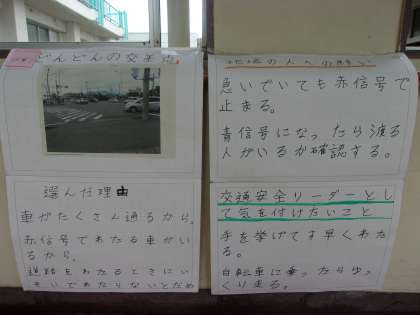 どんどんの交差点
選んだ理由
車がたくさん通るから。
赤信号でわたる車がい
るから。
道路をわたるときにい
そいでわたらないとだめ
地域の人への願い
急いでいても赤信号で
止まる。
青信号になったら渡る
人がいるか確認する。
交通安全リーダーとし
て気を付けたいこと
手を挙げてす早くわた
る。
自転車に乗ったらゆっ
くり走る。